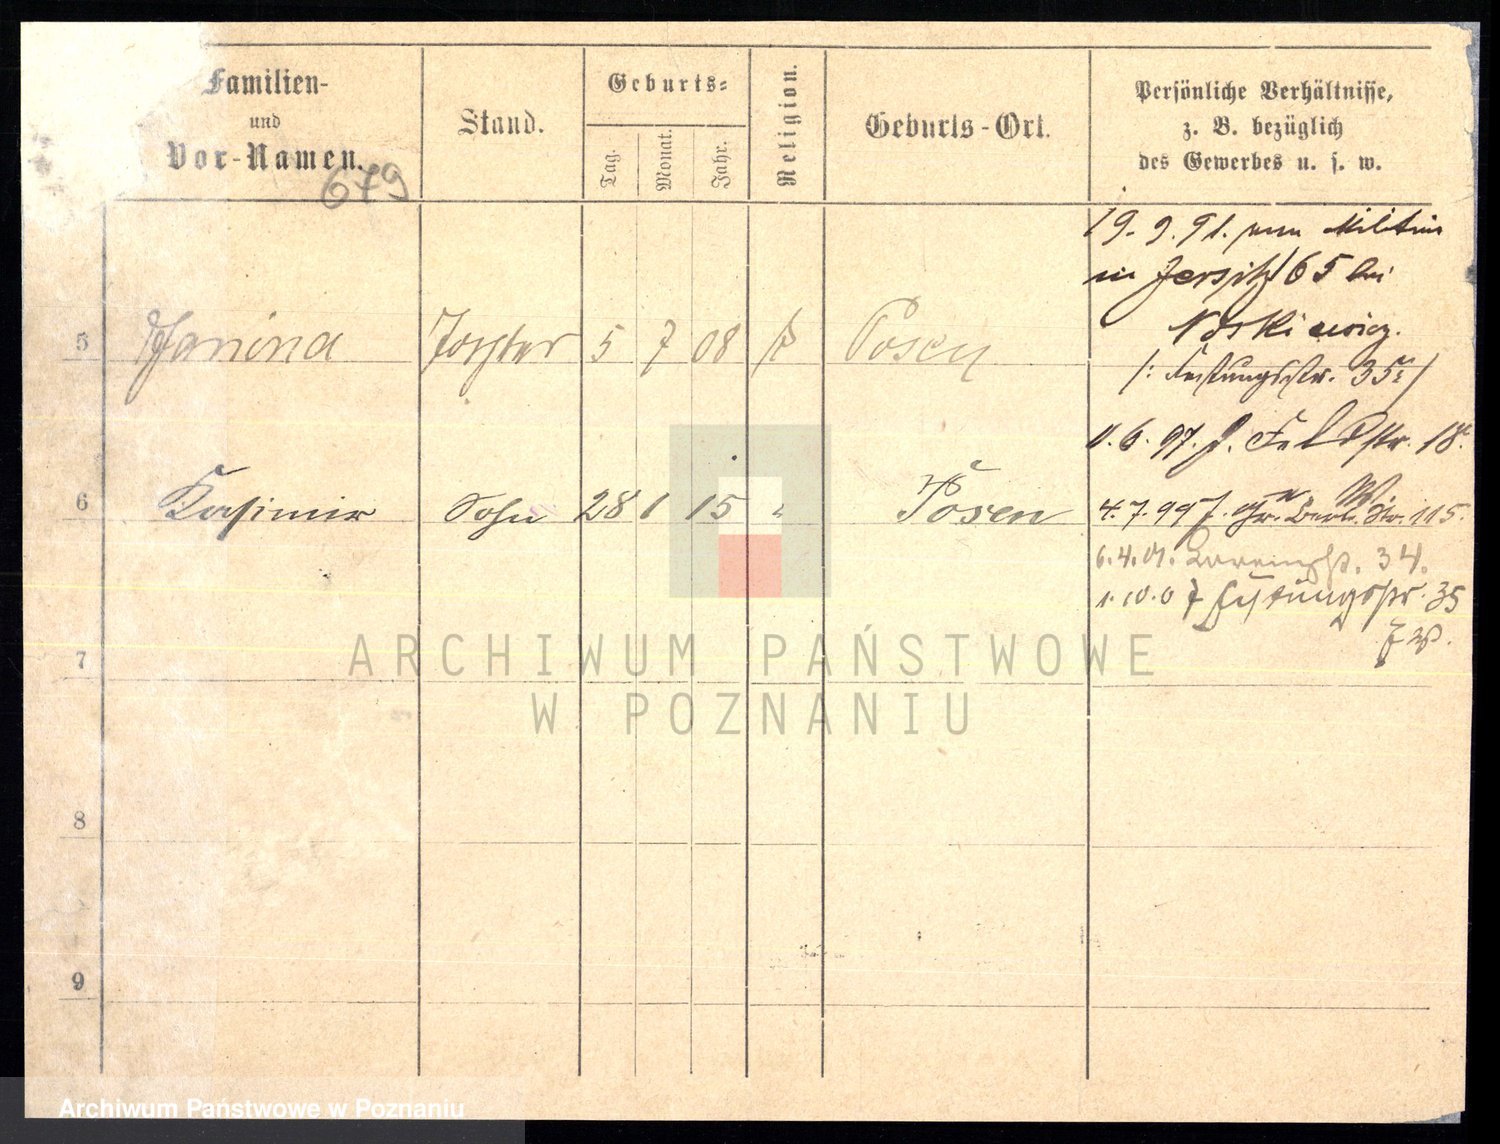 Familien-
und
Vor-Namen.
679
Stand.
Geburts-
Tag.
Monat.
Jahr.
Religion.
Geburts-Ort.
Persönliche Verhältnisse,
z. B. bezüglich
des Gewerbes u. s. w.
19. 9. 91. vom Militär
in Jersitz 65 bei
Noskiewicz.
/: Festungsstr. 35 :/
5 Janina Tochter 5 7 08 k Posen
6. 97. Feldstr. 18
6 Kasimir Sohn 28 1 15 " Posen
4. 7. 99 Gr. Berl. Str. 115.
6. 4. 01. 34.
1. 10. 07 Festungsstr. 35
7
8
9
ARCHIWUM PAŃSTWOWE
W POZNANIU
Archiwum Państwowe w Poznaniu